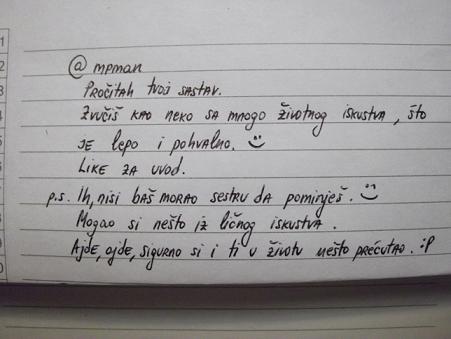 @ mpman
Pročitah tvoj sastav.
Zvučiš kao neko sa mnogo životnog iskustva, što
je lepo i pohvalno. :)
Like za uvod.
p.s. Ih, nisi baš morao sestru da pominješ. :)
Mogao si nešto iz ličnog iskustva.
Ajde, ajde, sigurno si i ti u životu nešto prećutao. :P